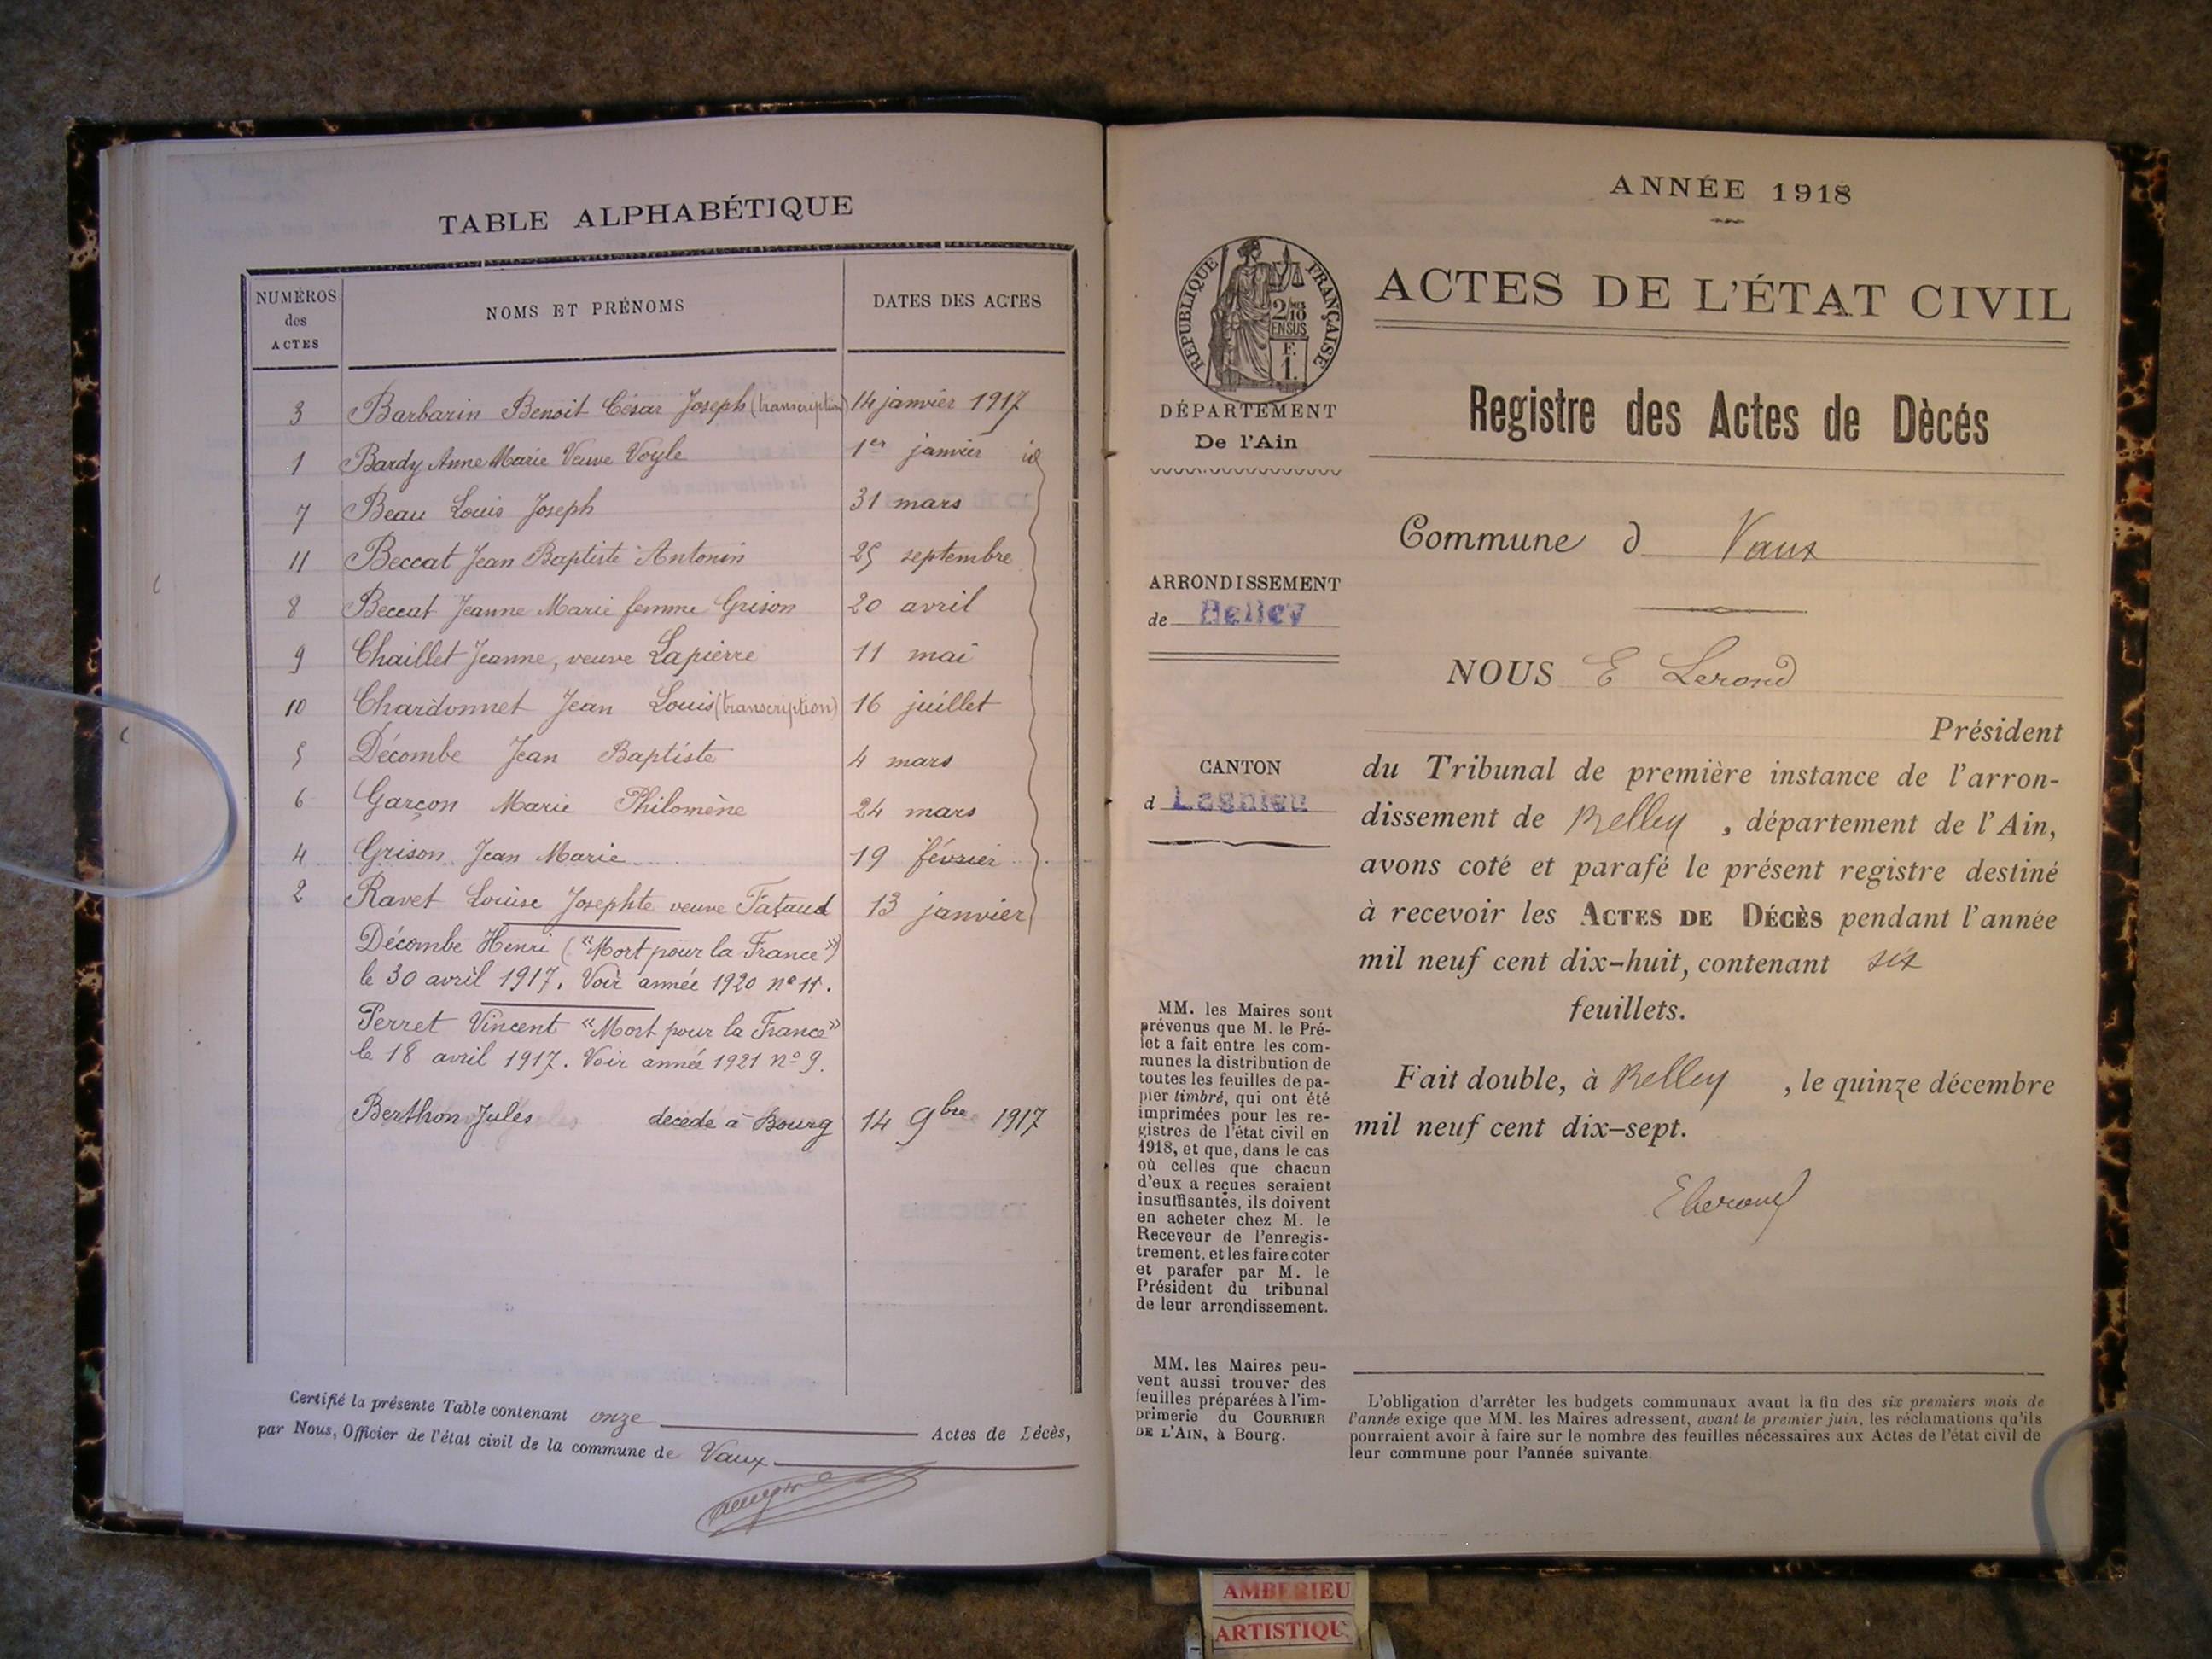 TABLE ALPHABÉTIQUE
NUMÉROS des ACTES
NOMS ET PRÉNOMS
DATES DES ACTES
3 Barbarin Benoit César Joseph (transcription) 14 janvier 1917
1 Bardy Anne Marie Veuve Voyle 1er janvier id
7 Beau Louis Joseph 31 mars
11 Beccat Jean Baptiste Antonin 25 septembre
8 Beccat Jeanne Marie femme Grison 20 avril
9 Chaillet Jeanne, veuve Lapierre 11 mai
10 Chardonnet Jean Louis (transcription) 16 juillet
5 Décombe Jean Baptiste 4 mars
6 Garçon Marie Philomène 24 mars
4 Grison Jean Marie 19 février
2 Ravet Louise Josephte veuve Fataud 13 janvier
Décombe Henri ("Mort pour la France")
le 30 avril 1917. Voir année 1920 n° 11.
Perret Vincent "Mort pour la France"
le 18 avril 1917. Voir année 1921 n° 9.
Berthon Jules decede à Bourg 14 9bre 1917
Certifié la présente Table contenant onze Actes de Décès,
par Nous, Officier de l'état civil de la commune de Vaux
ANNÉE 1918
RÉPUBLIQUE FRANÇAISE
2/10
EN SUS
F.
1.
ACTES DE L'ÉTAT CIVIL
DÉPARTEMENT
De l'Ain
Registre des Actes de Dècés
Commune d Vaux
ARRONDISSEMENT
de Belley
NOUS E Lerond
Président
CANTON
d Lagnieu
du Tribunal de première instance de l'arron-
dissement de Belley, département de l'Ain,
avons coté et parafé le présent registre destiné
à recevoir les ACTES DE DÉCÈS pendant l'année
mil neuf cent dix-huit, contenant six
feuillets.
Fait double, à Belley, le quinze décembre
mil neuf cent dix-sept.
ELerond
MM. les Maires sont
prévenus que M. le Pré-
fet a fait entre les com-
munes la distribution de
toutes les feuilles de pa-
pier timbré, qui ont été
imprimées pour les re-
gistres de l'état civil en
1918, et que, dans le cas
où celles que chacun
d'eux a reçues seraient
insuffisantes, ils doivent
en acheter chez M. le
Receveur de l'enregis-
trement, et les faire coter
et parafer par M. le
Président du tribunal
de leur arrondissement.
MM. les Maires peu-
vent aussi trouver des
feuilles préparées à l'im-
primerie du COURRIER
DE L'AIN, à Bourg.
L'obligation d'arrêter les budgets communaux avant la fin des six premiers mois de
l'année exige que MM. les Maires adressent, avant le premier juin, les réclamations qu'ils
pourraient avoir à faire sur le nombre des feuilles nécessaires aux Actes de l'état civil de
leur commune pour l'année suivante.
AMBERIEU
ARTISTIQU